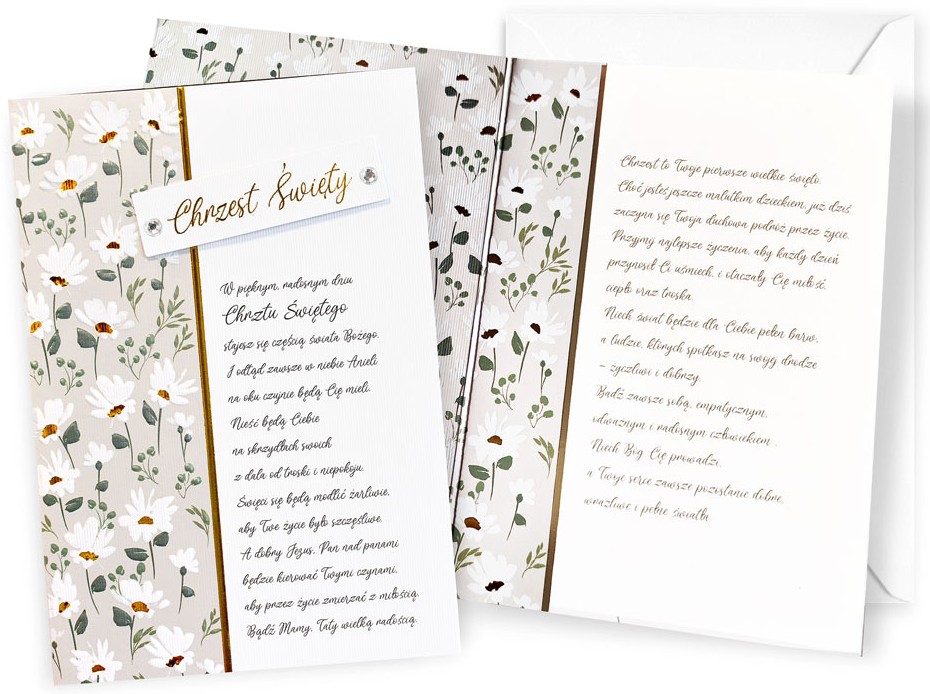 Chrzest Święty
W pięknym, radosnym dniu
Chrztu Świętego
stajesz się częścią świata Bożego.
I odtąd zawsze w niebie Anieli
na oku czujnie będą Cię mieli.
Nieść będą Ciebie
na skrzydłach swoich
z dala od troski i niepokoju.
Święci się będą modlić żarliwie,
aby Twe życie było szczęśliwe.
A dobry Jezus, Pan nad panami
będzie kierować Twymi czynami,
aby przez życie zmierzać z miłością.
Bądź Mamy, Taty wielką radością.
Chrzest to Twoje pierwsze wielkie święto.
Choć jesteś jeszcze malutkim dzieckiem, już dziś
zaczyna się Twoja duchowa podróż przez życie.
Przyjmij najlepsze życzenia, aby każdy dzień
przynosił Ci uśmiech, i otaczały Cię miłość,
ciepło oraz troska.
Niech świat będzie dla Ciebie pełen barw,
a ludzie, których spotkasz na swojej drodze
– życzliwi i dobrzy.
Bądź zawsze sobą, empatycznym,
odważnym i radosnym człowiekiem .
Niech Bóg Cię prowadzi,
a Twoje serce zawsze pozostanie dobre,
wrażliwe i pełne światła.